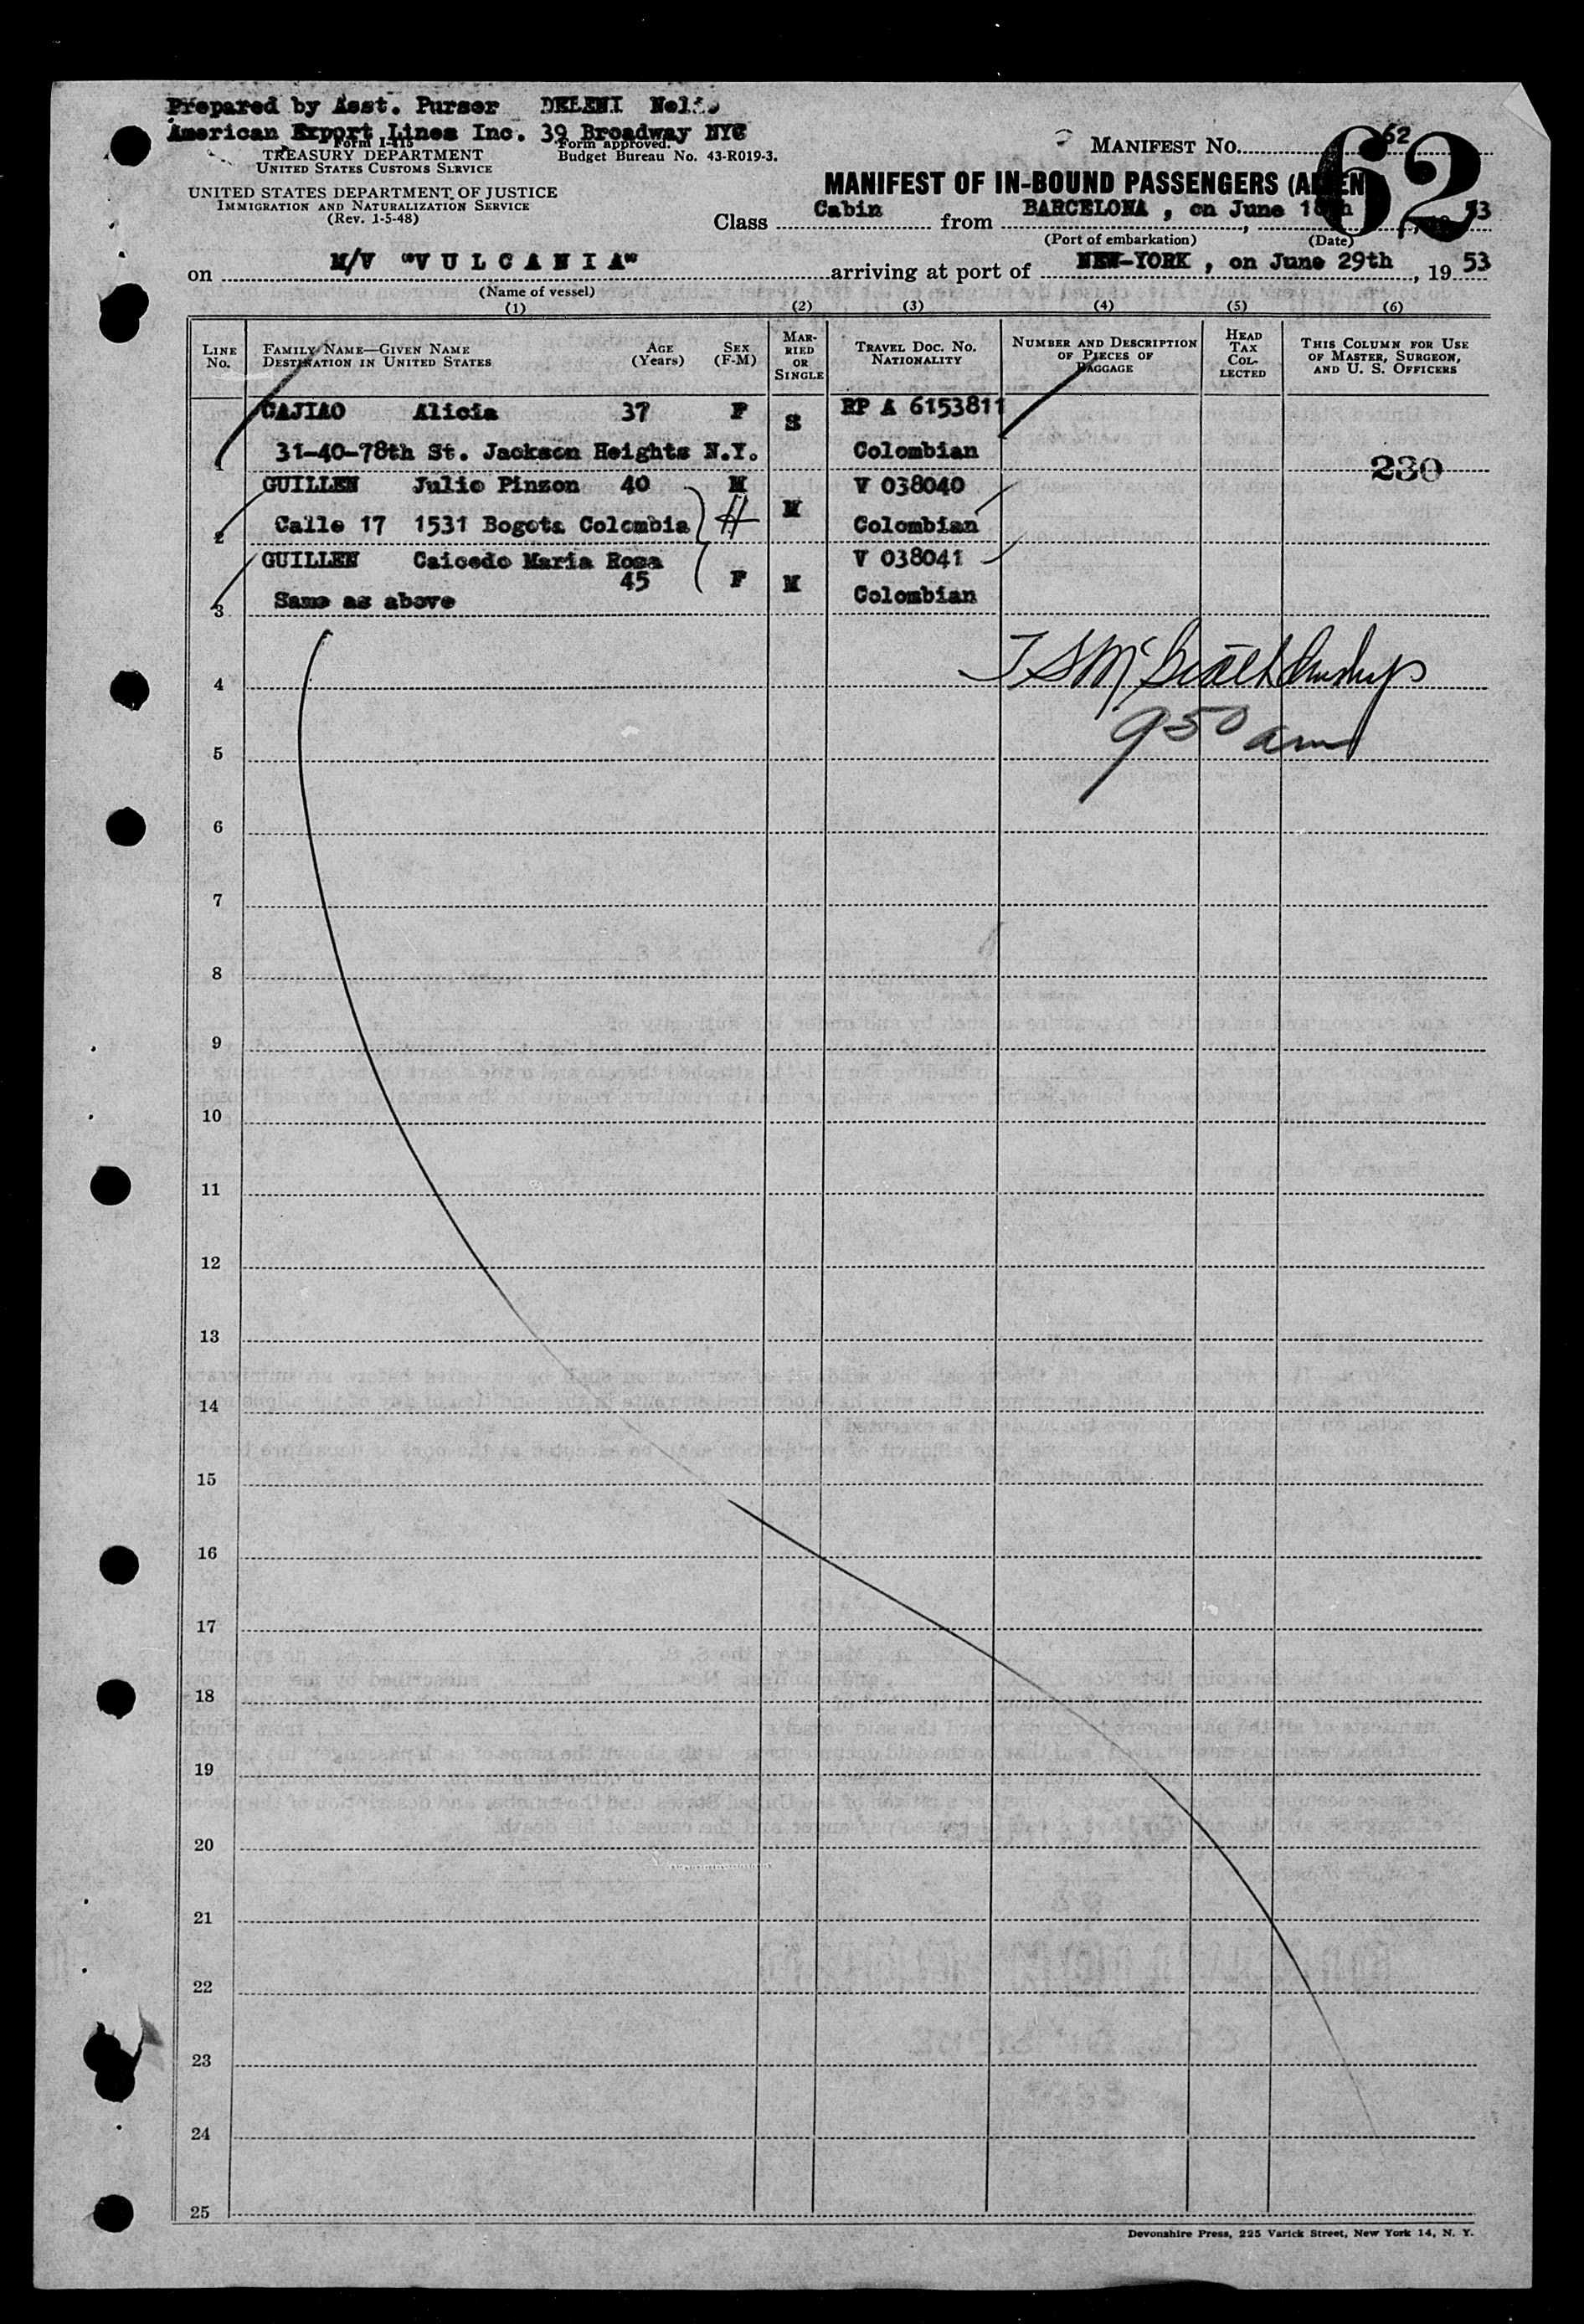 Prepared by Asst. Purser DELENI
American Export Lines Inc. 39 Broadway NYC
Form I-415
TREASURY DEPARTMENT
UNITED STATES CUSTOMS SERVICE
Form approved.
Budget Bureau No. 43-R019-3.
UNITED STATES DEPARTMENT OF JUSTICE
IMMIGRATION AND NATURALIZATION SERVICE
(Rev. 1-5-48)
MANIFEST No. 62
62
MANIFEST OF IN-BOUND PASSENGERS
Class Cabin from BARCELONA, on June 53
(Port of embarkation) (Date)
on M/V "VULCANIA" arriving at port of NEW-YORK, on June 29th, 19 53
(Name of vessel)
(1) (2) (3) (4) (5) (6)
LINE No.
FAMILY NAME—GIVEN NAME
DESTINATION IN UNITED STATES
AGE (Years)
SEX (F-M)
MARRIED OR SINGLE
TRAVEL DOC. NO.
NATIONALITY
NUMBER AND DESCRIPTION OF PIECES OF BAGGAGE
HEAD TAX COLLECTED
THIS COLUMN FOR USE OF MASTER, SURGEON, AND U. S. OFFICERS
1 CAJIAO Alicia 37 F S RP A 6153811
31-40-78th St. Jackson Heights N.Y. Colombian 230
2 GUILLEN Julio Pinzon 40 M M V 038040
Calle 17 1531 Bogota Colombia Colombian
3 GUILLEN Caicedo Maria Rosa 45 F M V 038041
Same as above Colombian
4
950 am
5
6
7
8
9
10
11
12
13
14
15
16
17
18
19
20
21
22
23
24
25
Devonshire Press, 225 Varick Street, New York 14, N. Y.